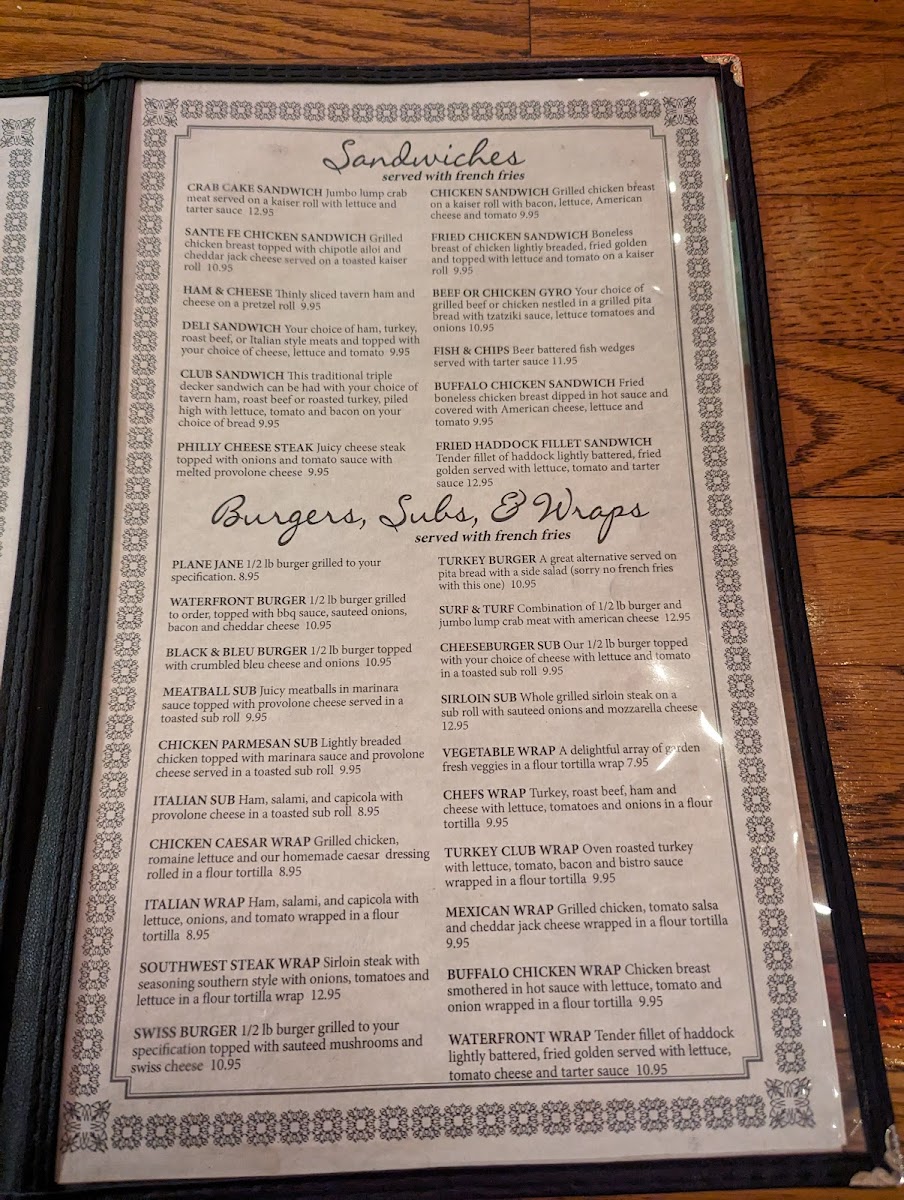 Sandwiches
served with french fries
CRAB CAKE SANDWICH Jumbo lump crab
meat served on a kaiser roll with lettuce and
tarter sauce 12.95
SANTE FE CHICKEN SANDWICH Grilled
chicken breast topped with chipotle ailoi and
cheddar jack cheese served on a toasted kaiser
roll 10.95
HAM & CHEESE Thinly sliced tavern ham and
cheese on a pretzel roll 9.95
DELI SANDWICH Your choice of ham, turkey,
roast beef, or Italian style meats and topped with
your choice of cheese, lettuce and tomato 9.95
CLUB SANDWICH This traditional triple
decker sandwich can be had with your choice of
tavern ham, roast beef or roasted turkey, piled
high with lettuce, tomato and bacon on your
choice of bread 9.95
PHILLY CHEESE STEAK Juicy cheese steak
topped with onions and tomato sauce with
melted provolone cheese 9.95
CHICKEN SANDWICH Grilled chicken breast
on a kaiser roll with bacon, lettuce, American
cheese and tomato 9.95
FRIED CHICKEN SANDWICH Boneless
breast of chicken lightly breaded, fried golden
and topped with lettuce and tomato on a kaiser
roll 9.95
BEEF OR CHICKEN GYRO Your choice of
grilled beef or chicken nestled in a grilled pita
bread with tzatziki sauce, lettuce tomatoes and
onions 10.95
FISH & CHIPS Beer battered fish wedges
served with tarter sauce 11.95
BUFFALO CHICKEN SANDWICH Fried
boneless chicken breast dipped in hot sauce and
covered with American cheese, lettuce and
tomato 9.95
FRIED HADDOCK FILLET SANDWICH
Tender fillet of haddock lightly battered, fried
golden served with lettuce, tomato and tarter
sauce 12.95
Burgers, Subs, & Wraps
served with french fries
PLANE JANE 1/2 lb burger grilled to your
specification. 8.95
WATERFRONT BURGER 1/2 lb burger grilled
to order, topped with bbq sauce, sauteed onions,
bacon and cheddar cheese 10.95
BLACK & BLEU BURGER 1/2 lb burger topped
with crumbled bleu cheese and onions 10.95
MEATBALL SUB Juicy meatballs in marinara
sauce topped with provolone cheese served in a
toasted sub roll 9.95
CHICKEN PARMESAN SUB Lightly breaded
chicken topped with marinara sauce and provolone
cheese served in a toasted sub roll 9.95
ITALIAN SUB Ham, salami, and capicola with
provolone cheese in a toasted sub roll 8.95
CHICKEN CAESAR WRAP Grilled chicken,
romaine lettuce and our homemade caesar dressing
rolled in a flour tortilla 8.95
ITALIAN WRAP Ham, salami, and capicola with
lettuce, onions, and tomato wrapped in a flour
tortilla 8.95
SOUTHWEST STEAK WRAP Sirloin steak with
seasoning southern style with onions, tomatoes and
lettuce in a flour tortilla wrap 12.95
SWISS BURGER 1/2 lb burger grilled to your
specification topped with sauteed mushrooms and
swiss cheese 10.95
TURKEY BURGER A great alternative served on
pita bread with a side salad (sorry no french fries
with this one) 10.95
SURF & TURF Combination of 1/2 lb burger and
jumbo lump crab meat with american cheese 12.95
CHEESEBURGER SUB Our 1/2 lb burger topped
with your choice of cheese with lettuce and tomato
in a toasted sub roll 9.95
SIRLOIN SUB Whole grilled sirloin steak on a
sub roll with sauteed onions and mozzarella cheese
12.95
VEGETABLE WRAP A delightful array of garden
fresh veggies in a flour tortilla wrap 7.95
CHEFS WRAP Turkey, roast beef, ham and
cheese with lettuce, tomatoes and onions in a flour
tortilla 9.95
TURKEY CLUB WRAP Oven roasted turkey
with lettuce, tomato, bacon and bistro sauce
wrapped in a flour tortilla 9.95
MEXICAN WRAP Grilled chicken, tomato salsa
and cheddar jack cheese wrapped in a flour tortilla
9.95
BUFFALO CHICKEN WRAP Chicken breast
smothered in hot sauce with lettuce, tomato and
onion wrapped in a flour tortilla 9.95
WATERFRONT WRAP Tender fillet of haddock
lightly battered, fried golden served with lettuce,
tomato cheese and tarter sauce 10.95